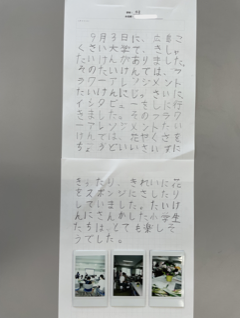 ９月３日に、広島こ
くさい大学で、きしゃ
たいけんがありました。
そのたいけんでは、フ
ラワーアレンジメント
たいけんにじっさいに
インタビューをしに行
きました。そのフラワ
ーアレンジメントたい
けんでは、花やくきを
ちょうどいい大いさに
きったり、きれいに花
をスポンジにさしたり
していました。たいけ
んにさんかした小学生
たちは、とても楽しそ
うでした。